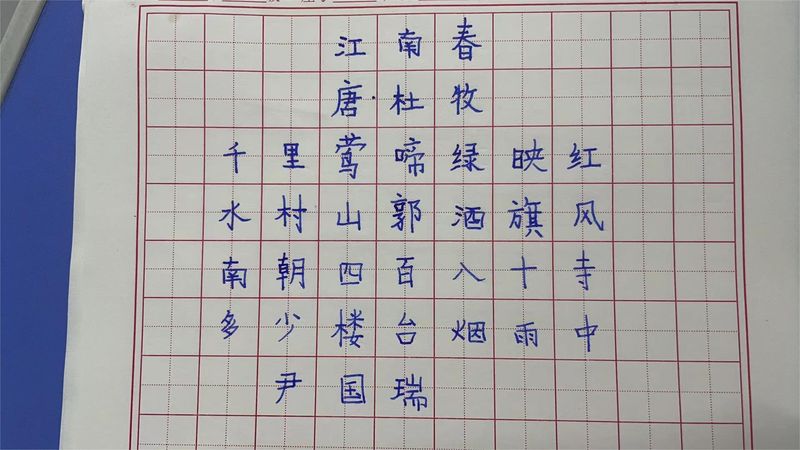 江南春
唐·杜牧
千里莺啼绿映红
水村山郭酒旗风
南朝四百八十寺
多少楼台烟雨中
尹国瑞